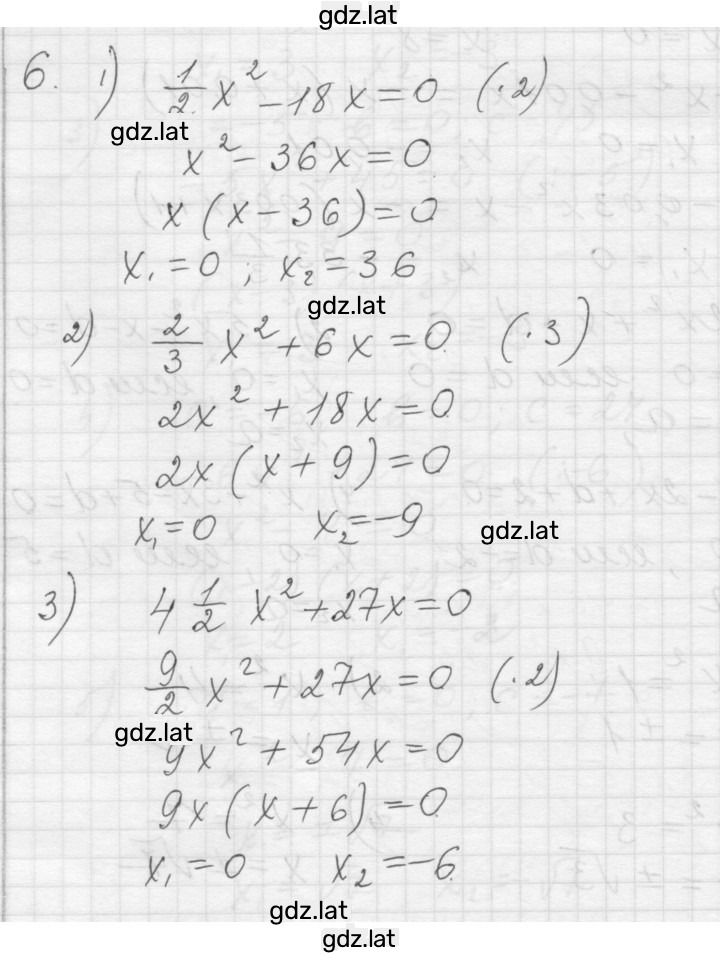 gdz.lat
6. 1) 1/2 x² - 18x = 0 (·2)
gdz.lat
x² - 36x = 0
x(x - 36) = 0
x₁ = 0 ; x₂ = 36
gdz.lat
2) 2/3 x² + 6x = 0 (·3)
2x² + 18x = 0
2x(x + 9) = 0
x₁ = 0 x₂ = -9
gdz.lat
3) 4 1/2 x² + 27x = 0
9/2 x² + 27x = 0 (·2)
gdz.lat
9x² + 54x = 0
9x(x + 6) = 0
x₁ = 0 x₂ = -6
gdz.lat
gdz.lat